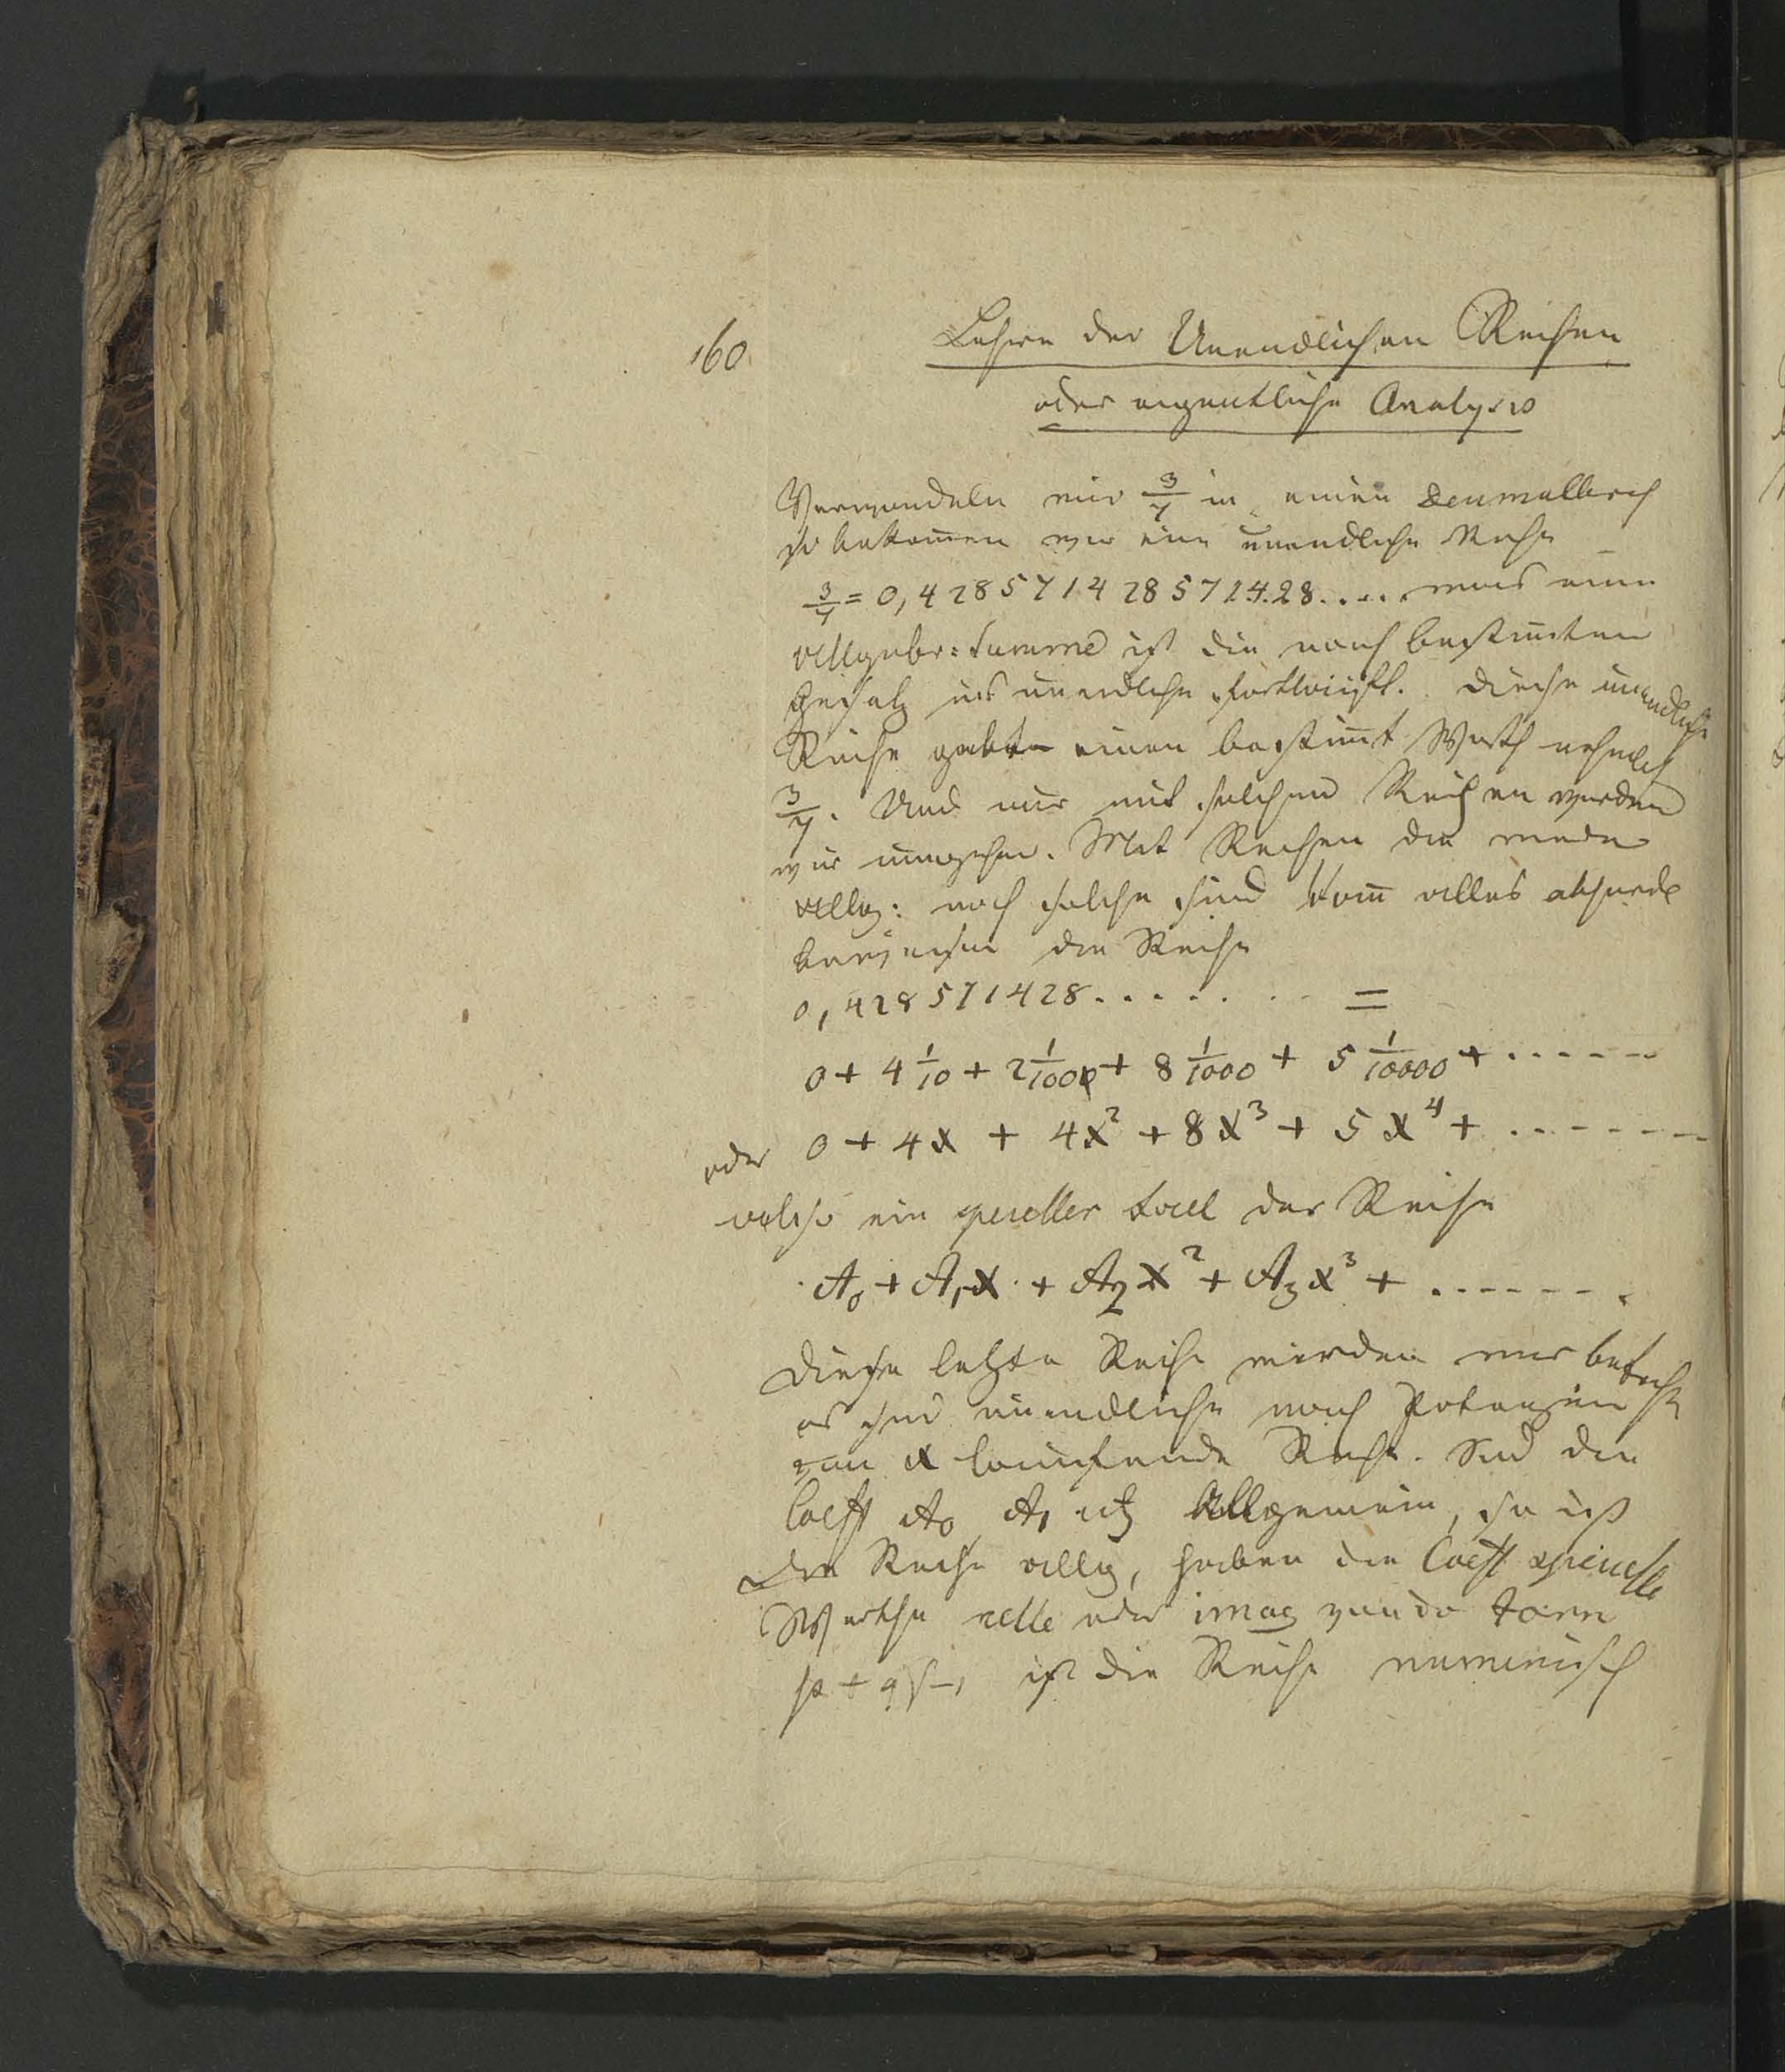 160
Lehre der Unendlichen Reihen
oder eigentliche Analysis
Verwandeln wir 3/7 in einen Decimalbruch
so bekom̄en wir eine unendliche Reihe
3/7 = 0,42857142857 14.28..... was eine
allgebr: Summe ist die nach bestim̄ten
Gesetz ins unendliche fortläuft. Diese unendliche
Reihe einen bestim̄t Werth nehmlich
3/7. Und nur mit solchen Reihen werden
wir umgehen. Mit Reihen die weder
allg: noch solche sind kom̄ alles absurde
die Reihe
0,428571428........ =
0 + 4 1/10 + 2 1/100 + 8 1/1000 + 5 1/10000 + ......
oder 0 + 4x + 4x² + 8x³ + 5x⁴ + .......
also ein specieller der Reihe
A₀ + A₁x + A₂x² + A₃x³ + .......
Diese letzte Reihe werden wir
es sind unendliche nach Potenzen
von x laufende Reihe. Sind die
Coeff A₀ A₁ allgemein, so ist
die Reihe allg, haben die Coeff specielle
Werthe relle oder imag von der Form
p + q√-1 ist die Reihe numerisch